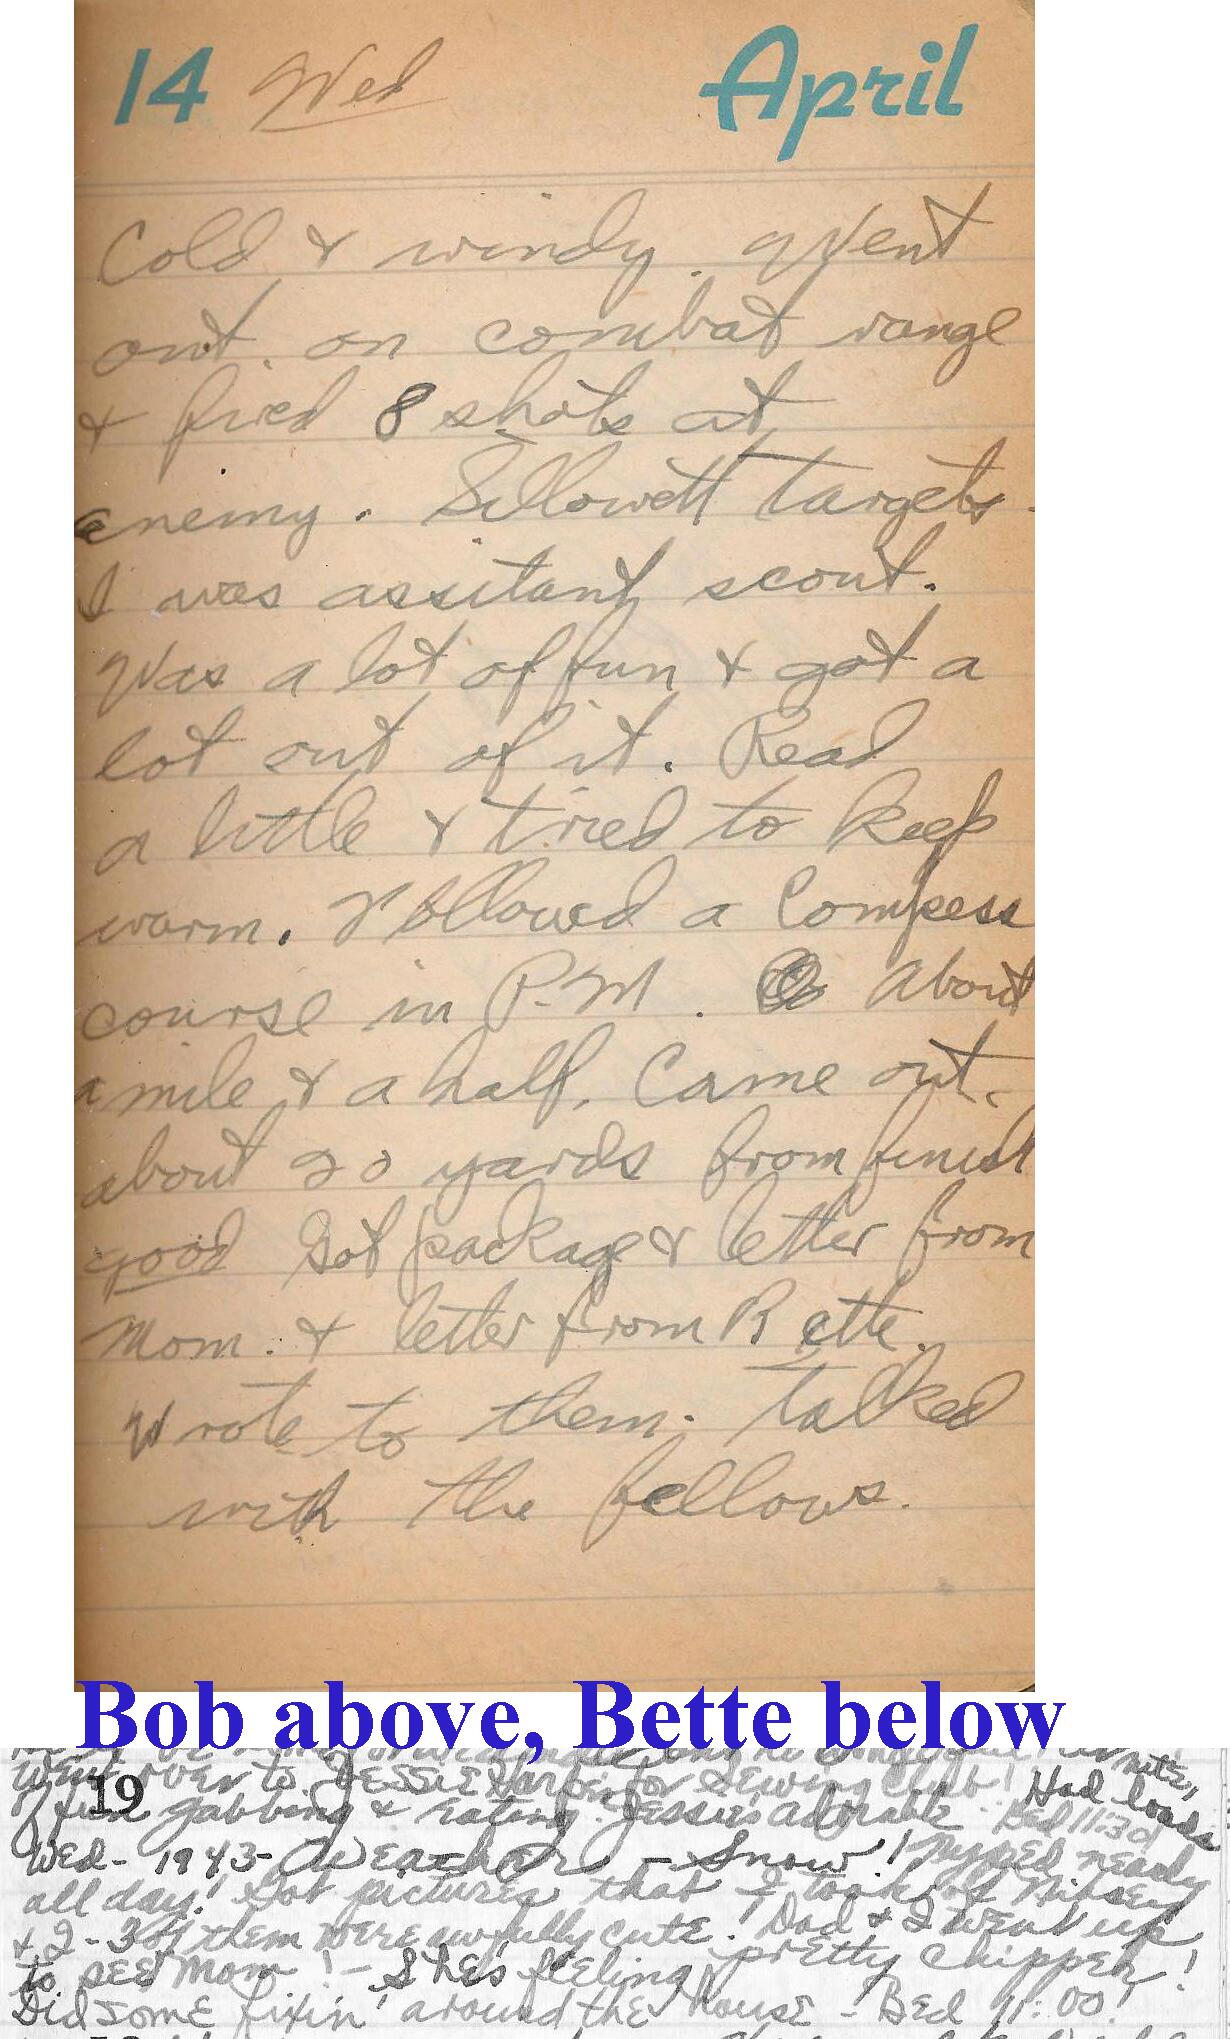 14 Wed April
Cold & windy. Went
out. on combat range
& fired 8 shots at
enemy. Sillowett targets.
I was assitant scout.
Was a lot of fun & got a
lot out of it. Read
a little & tried to keep
warm. Followed a Compess
course in P.M. About
a mile & a half. Came out.
about 20 yards from finish
good Got package & letter from
Mom. & letter from Bette.
Wrote to them. Talked
with the fellows.
Bob above, Bette below
went over to Jessie for Sewing Club! Had loads
19
of fun gabbing & eating. Jessie's adorable. Bed 11:30
Wed - 1943 - Weather - Snow! nearly
all day! Got pictures that I took of Mitsey
& I - 3 of them were awfully cute! Dad & I went up
to see Mom! - She's feeling pretty chipper!
Did some fixin' around the house - Bed 11:00!